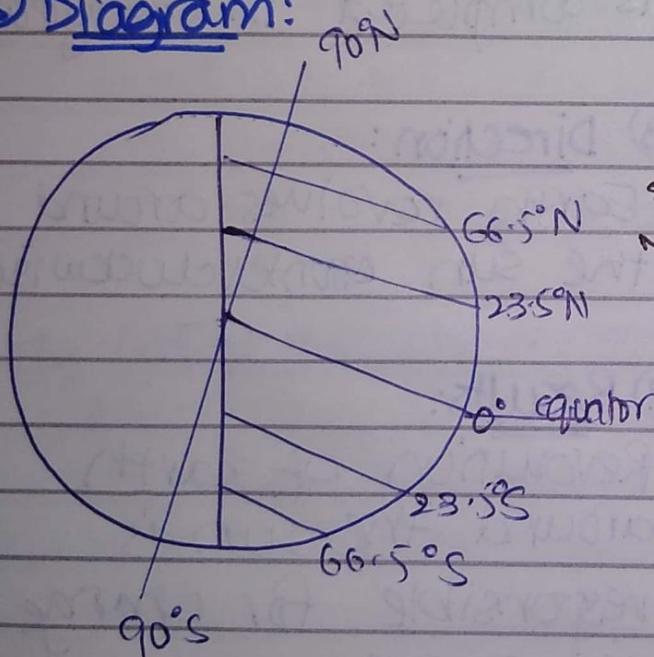 Diagram:
90°N
66.5°N
23.5°N
0° equator
23.5°S
66.5°S
90°S